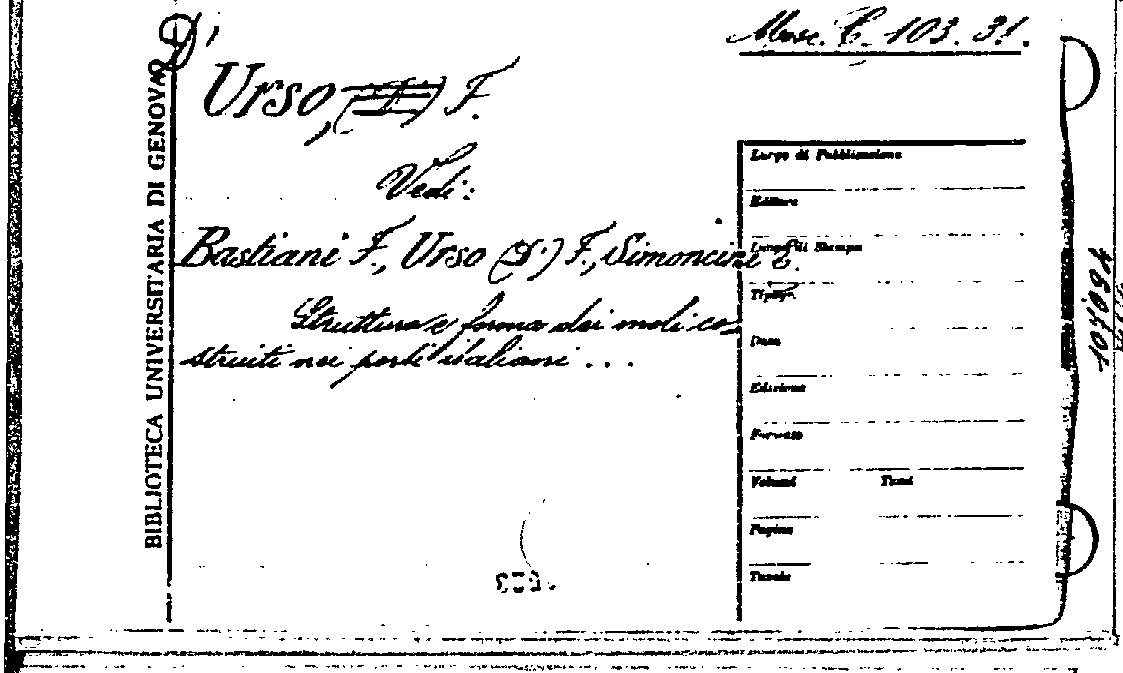 BIBLIOTECA UNIVERSITARIA DI GENOVA
Misc. C. 103. 31.
D'
Urso, (D') F.
Vedi:
Bastiani F., Urso (D') F., Simoncini E.
Struttura e forma dei moli co-
struiti nei porti italiani ...
Luogo di Pubblicazione
Editore
Luogo di Stampa
Tipogr.
Data
Edizione
Formato
Volumi Tomi
Pagine
Tavole